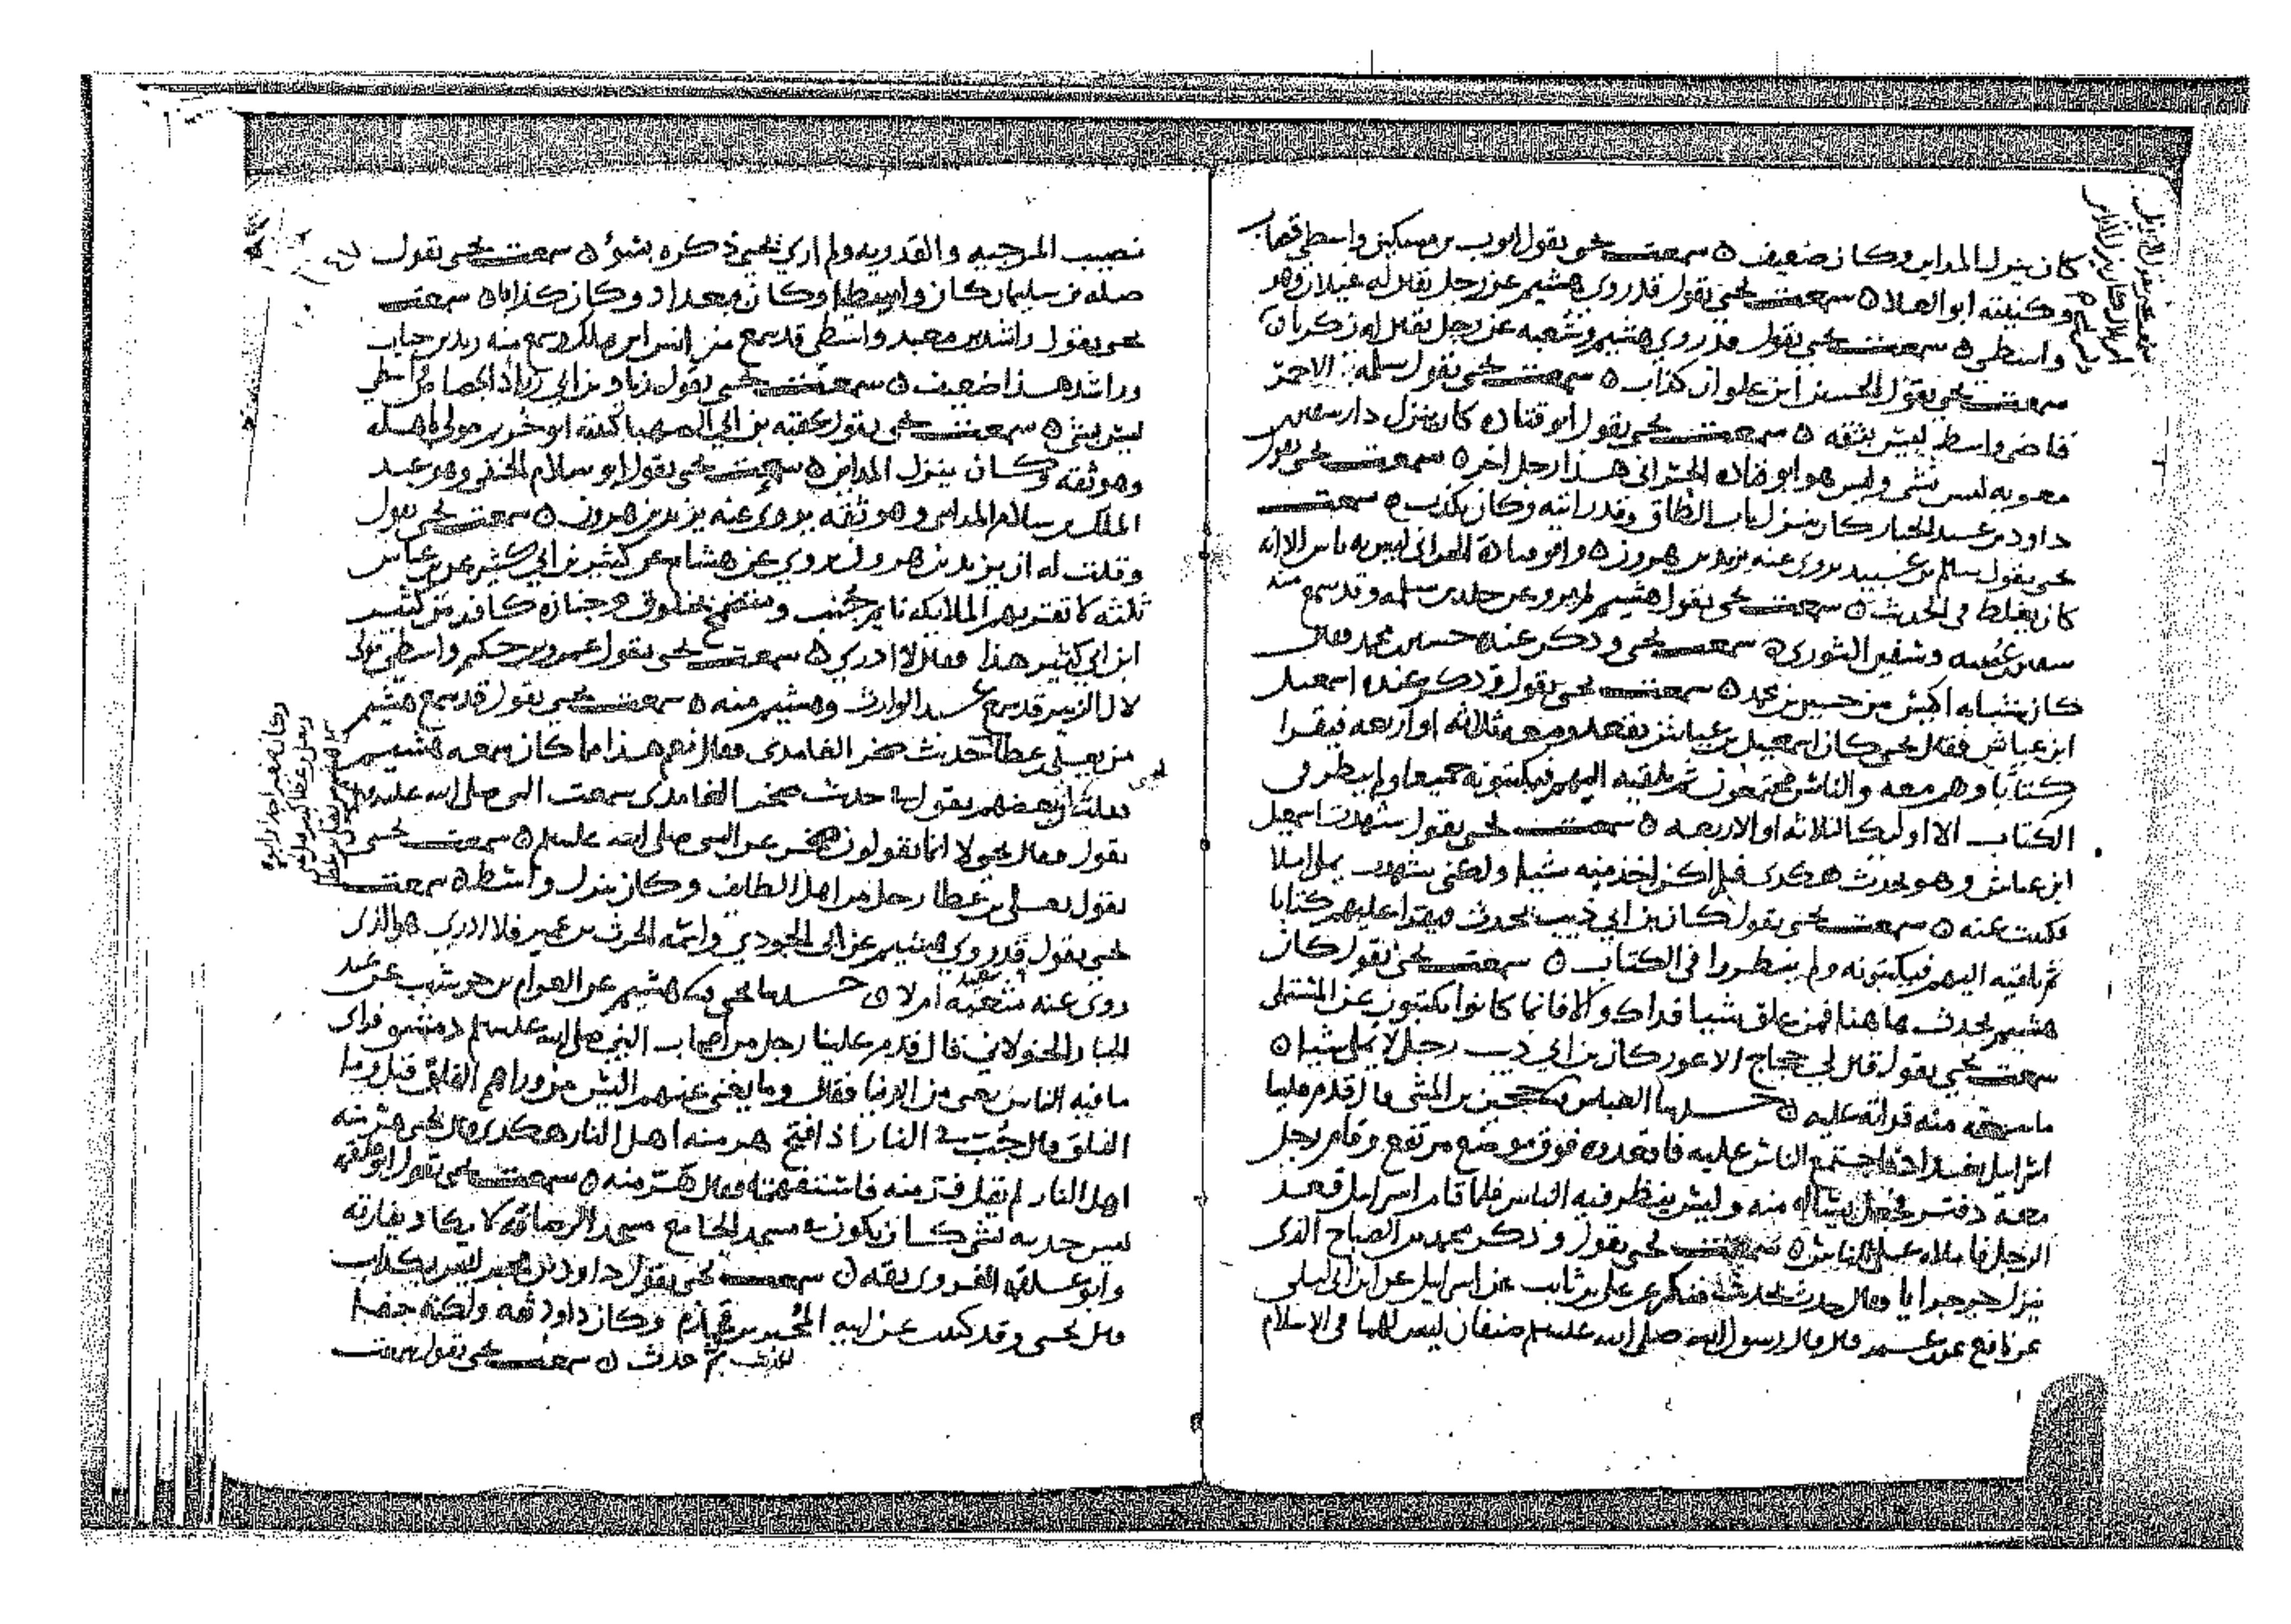 كان ينزل المداين وكان ضعيف ه سمعت يحيى يقول ايوب بن مسكين واسطي قصاب
وكنيته ابو العلاء ه سمعت يحيى يقول قد روى هشيم عن رجل يقال له عيلان وهو
واسطي ه سمعت يحيى يقول قد روى هشيم وشعبه عن رجل يقال له زكريا
سمعت يحيى يقول الحسن ابن علوان كذاب ه سمعت يحيى يقول سلمة الاحمر
قاضي واسط ليس بثقه ه سمعت يحيى يقول ابو قتاده كان ينزل دار
معويه ليس بشي وليس هو ابو قتاده الحراني هذا رجل اخر ه سمعت يحيى يقول
داود بن عبد الجبار كان ينزل باب الطاق وقد رايته وكان يكذب ه سمعت
يحيى يقول سلم بن عبيد يروى عنه يزيد بن هرون ه وابو قتادة الحراني ليس به باس الا انه
كان يغلط في الحديث ه سمعت يحيى يقول هشيم لم يرو عن خلد بن سلمه وقد سمع منه
سفين بن عيينه وسفين الثوري ه سمعت يحيى وذكر عنده حسين بن محمد فقال
كان يشبابه اكيس من حسين بن محمد ه سمعت يحيى يقول وذكر عنده اسمعيل
ابن عياش فقال يحيى كان اسمعيل بن عياش يقعد ومعه ثلاثه او اربعه فيقرا
كتابا وهم معه والناس مجتمعون ثم يلقيه اليهم فيكتبونه جميعا ولم ينظر في
الكتاب الا اوليك الثلاثه او الاربعه ه سمعت يحيى يقول شهدت اسمعيل
ابن عياش وهو يحدث هكذى فلم اكن اخذ منه شيا ولكني شهدت يملي املا
فكتبت عنه ه سمعت يحيى يقول كان بن ابي ذيب يحدث فيقرا عليهم كتابا
ثم يلقيه اليهم فيكتبونه ولم ينظروا في الكتاب ه سمعت يحيى يقول كان
هشيم يحدث ها هنا فمن علق شيا فداك والا فانما كانوا يكتبون عن المستملي
سمعت يحيى يقول قال لي حجاج الاعور كان بن ابي ذيب رجل لا يملي شيا ه
ما سمعته منه قراته عليه ه حدثنا العباس حجين بن المثنى قال قدم علينا
اسرايل بغداد فاجتمع الناس عليه فاقعدوه فوق موضع مرتفع وقام رجل
معه دفتر فجعل يساله منه وليس ينظر فيه الناس فلما قام اسرايل قعد
الرجل فاملاه على الناس ه سمعت يحيى يقول وذكر محمد بن الصباح الذى
ينزل جرجرايا فقال حدث بحديث منكر عن علي بن ثابت عن اسرايل عن ابن ابي ليلى
عن نافع عن بن عمر قال قال رسول الله صلى الله عليه وسلم صنفان ليس لهما في الاسلام
نصيب المرجيه والقدريه ولم ارى يحيى ذكره بشئ ه سمعت يحيى يقول
صله بن سليمان كان واسطيا وكان ببغداد وكان كذابا ه سمعت
يحيى يقول راشد بن معبد واسطي قد سمع من انس ابن ملك وسمع منه زيد بن حباب
وراشد هذا ضعيف ه سمعت يحيى يقول زياد بن ابي زياد الجصاص واسطي
ليس بشئ ه سمعت يحيى يقول عقبه بن ابي الصهبا كنيته ابو خريم مولى باهله
وهو ثقه وكان ينزل المداين ه سمعت يحيى يقول ابو سلام الحنفي وهو عبد
الملك بن سلام المدايني وهو ثقه يروى عنه يزيد بن هرون ه سمعت يحيى يقول
وقلت له ان يزيد بن هرون يروي عن هشام عن كثير بن ابي كثير عن بن عباس
ثلثه لا تقربهم الملايكه نايم جنب ومتضمخ بخلوق وجنازة كافر من كثير
ابن ابي كثير هذا فقال لا ادري ه سمعت يحيى يقول عمرو بن حكيم واسطي مولى
لال الزبير قد سمع عبد الوارث وهشيم منه ه سمعت يحيى يقول قد سمع هشيم
من يعلى بن عطا حديث صخر الغامدي فقال نعم هذا ما كان سمعه هشيم
فقلت ان بعضهم يقول في حديث صخر الغامدي سمعت النبي صلى الله عليه وسلم
يقول فقال يحيى لا انما يقولون صخر عن النبي صلى الله عليه وسلم ه سمعت يحيى
يقول يعلى بن عطا رجل من اهل الطايف وكان ينزل واسط ه سمعت
يحيى يقول قد روي هشيم عن ابي الجودي واسمه الحرث بن عمير فلا ادري هو الذي
روى عنه شعبه ام لا ه حدثنا يحيى هشيم عن العوام بن حوشب عن عبد
الجبار الخولاني قال قدم علينا رجل من اصحاب النبي صلى الله عليه وسلم دمشق فراى
ما فيه الناس يعني من الدنيا فقال وما يغني عنهم اليس من وراهم الفلق قيل وما
الفلق قال جب في النار اذا فتح هر منه اهل النار هكذى قال يحيى هر منه
اهل النار لم يقل فر منه فاستفهمته فقال هر منه ه سمعت يحيى يقول ابو علقمه
ليس حديثه بشي كان يكون في مسجد الجامع مسجد الرصافه لا يكاد يفارقه
وابو علقمه الفروي ثقه ه سمعت يحيى يقول داود بن المحبر ليس بكذاب
قال يحيى وقد كتبت عن ابيه المحبر بن قحذم وكان داود ثقه ولكنه جفا
الحديث ثم حدث ه سمعت يحيى يقول سمعت